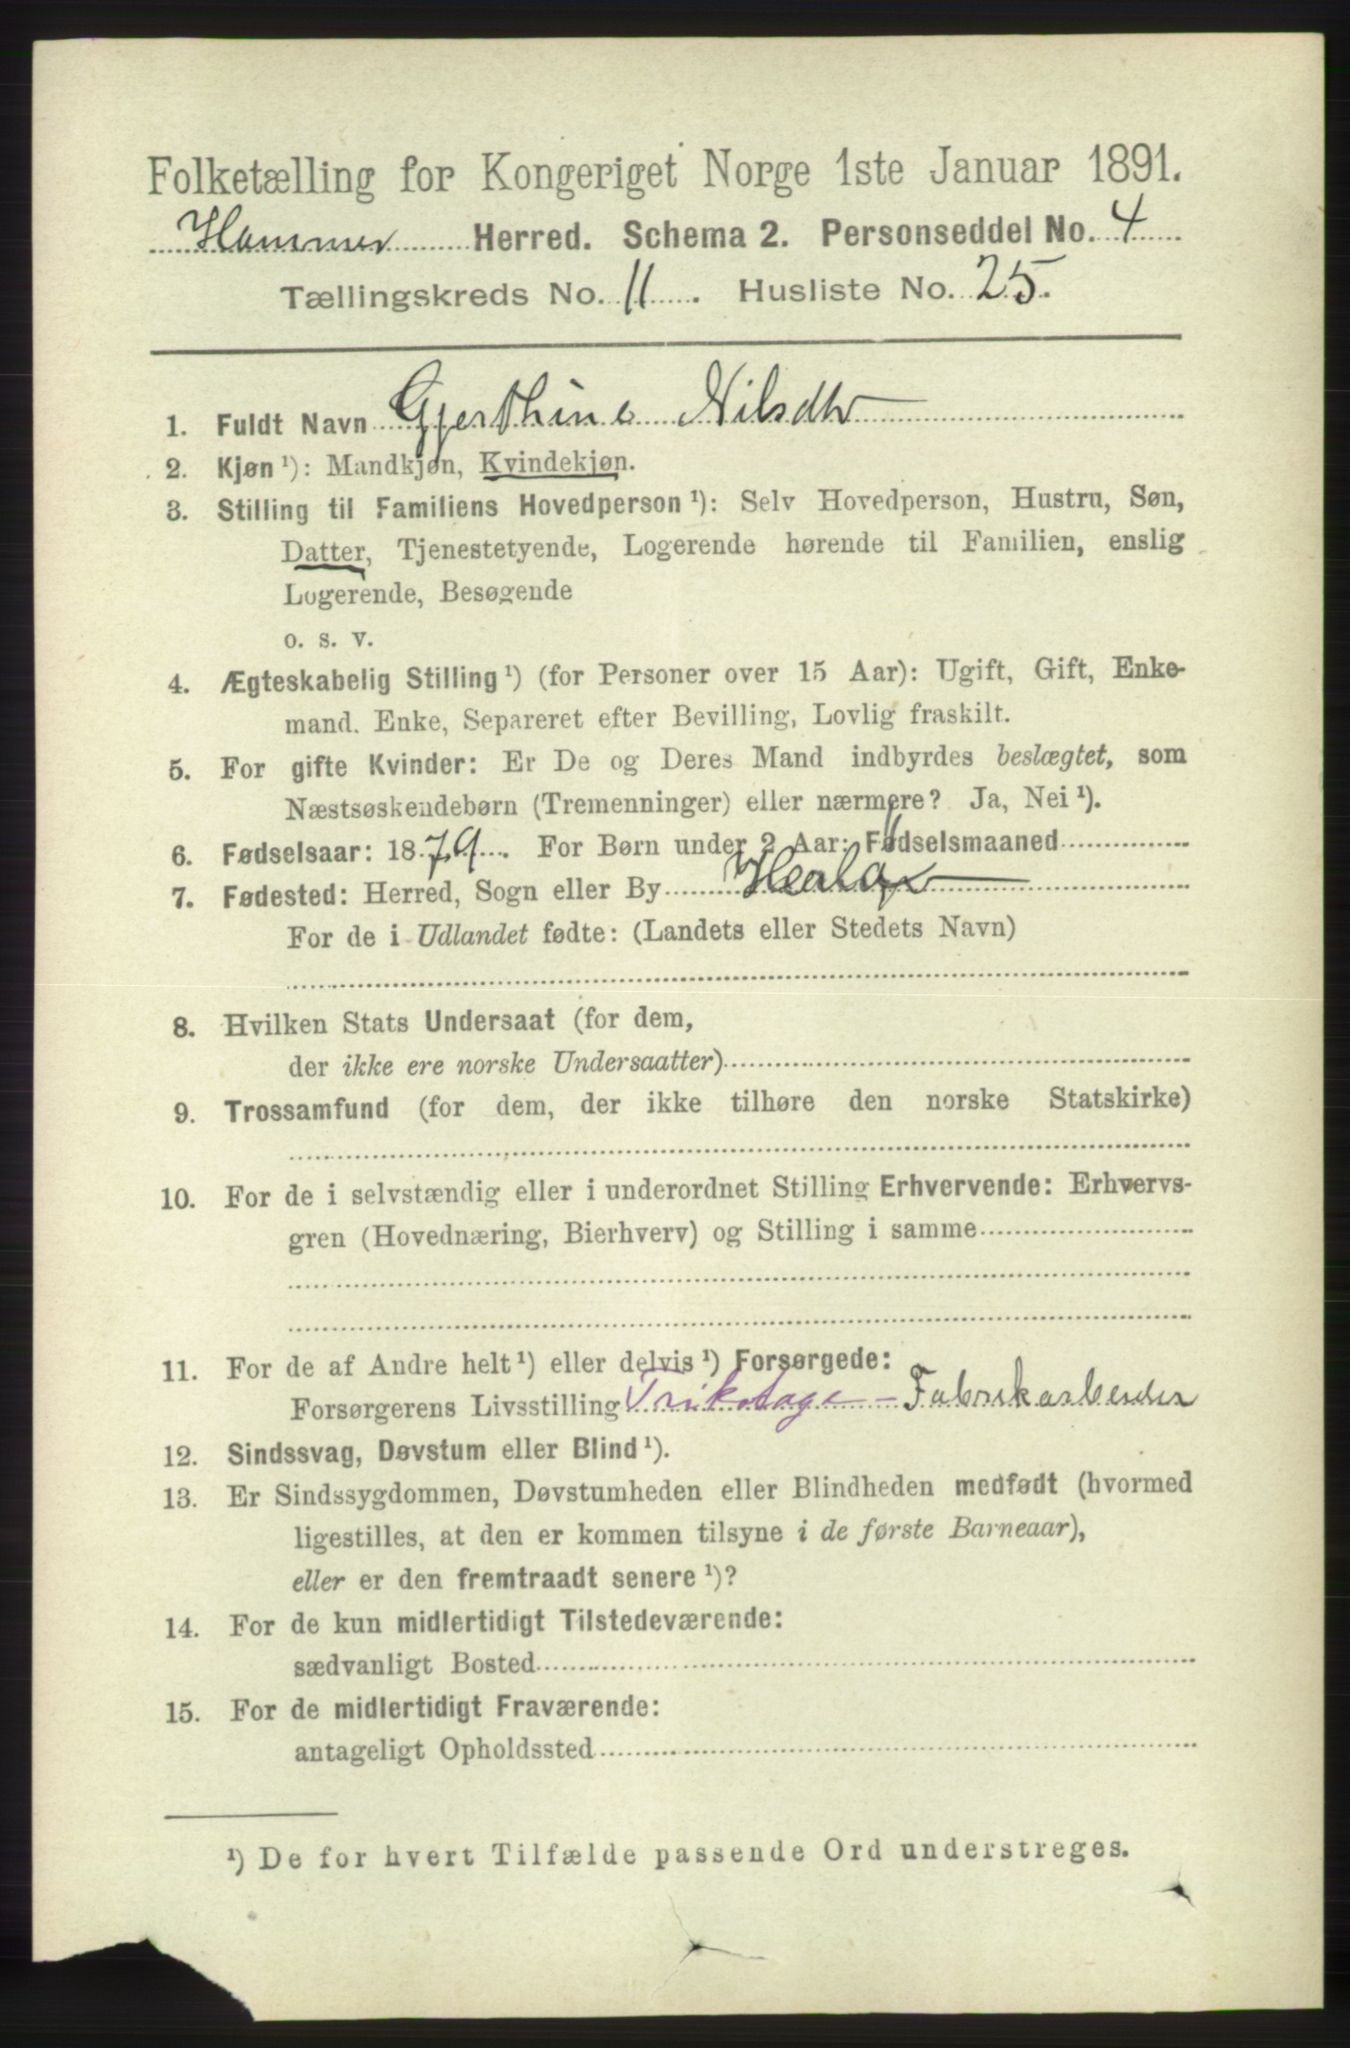 Folketælling for Kongeriget Norge 1ste Januar 1891.
Hammer Herred. Schema 2. Personseddel No. 4
Tællingskreds No. 11. Husliste No. 25.
1. Fuldt Navn Gjerthine Nilsdtr
2. Kjøn ¹): Mandkjøn, Kvindekjøn.
3. Stilling til Familiens Hovedperson ¹): Selv Hovedperson, Hustru, Søn,
Datter, Tjenestetyende, Logerende hørende til Familien, enslig
Logerende, Besøgende
o. s. v.
4. Ægteskabelig Stilling ¹) (for Personer over 15 Aar): Ugift, Gift, Enke-
mand. Enke, Separeret efter Bevilling, Lovlig fraskilt.
5. For gifte Kvinder: Er De og Deres Mand indbyrdes beslægtet, som
Næstsøskendebørn (Tremenninger) eller nærmere? Ja, Nei ¹).
6. Fødselsaar: 1879. For Børn under 2 Aar: Fødselsmaaned
7. Fødested: Herred, Sogn eller By
For de i Udlandet fødte: (Landets eller Stedets Navn)
8. Hvilken Stats Undersaat (for dem,
der ikke ere norske Undersaatter)
9. Trossamfund (for dem, der ikke tilhøre den norske Statskirke)
10. For de i selvstændig eller i underordnet Stilling Erhvervende: Erhvervs-
gren (Hovednæring, Bierhverv) og Stilling i samme
11. For de af Andre helt ¹) eller delvis ¹) Forsørgede:
Forsørgerens Livsstilling Trikotage - Fabrikarbeider
12. Sindssvag, Døvstum eller Blind ¹).
13. Er Sindssygdommen, Døvstumheden eller Blindheden medfødt (hvormed
ligestilles, at den er kommen tilsyne i de første Barneaar),
eller er den fremtraadt senere ¹)?
14. For de kun midlertidigt Tilstedeværende:
sædvanligt Bosted
15. For de midlertidigt Fraværende:
antageligt Opholdssted
¹) De for hvert Tilfælde passende Ord understreges.